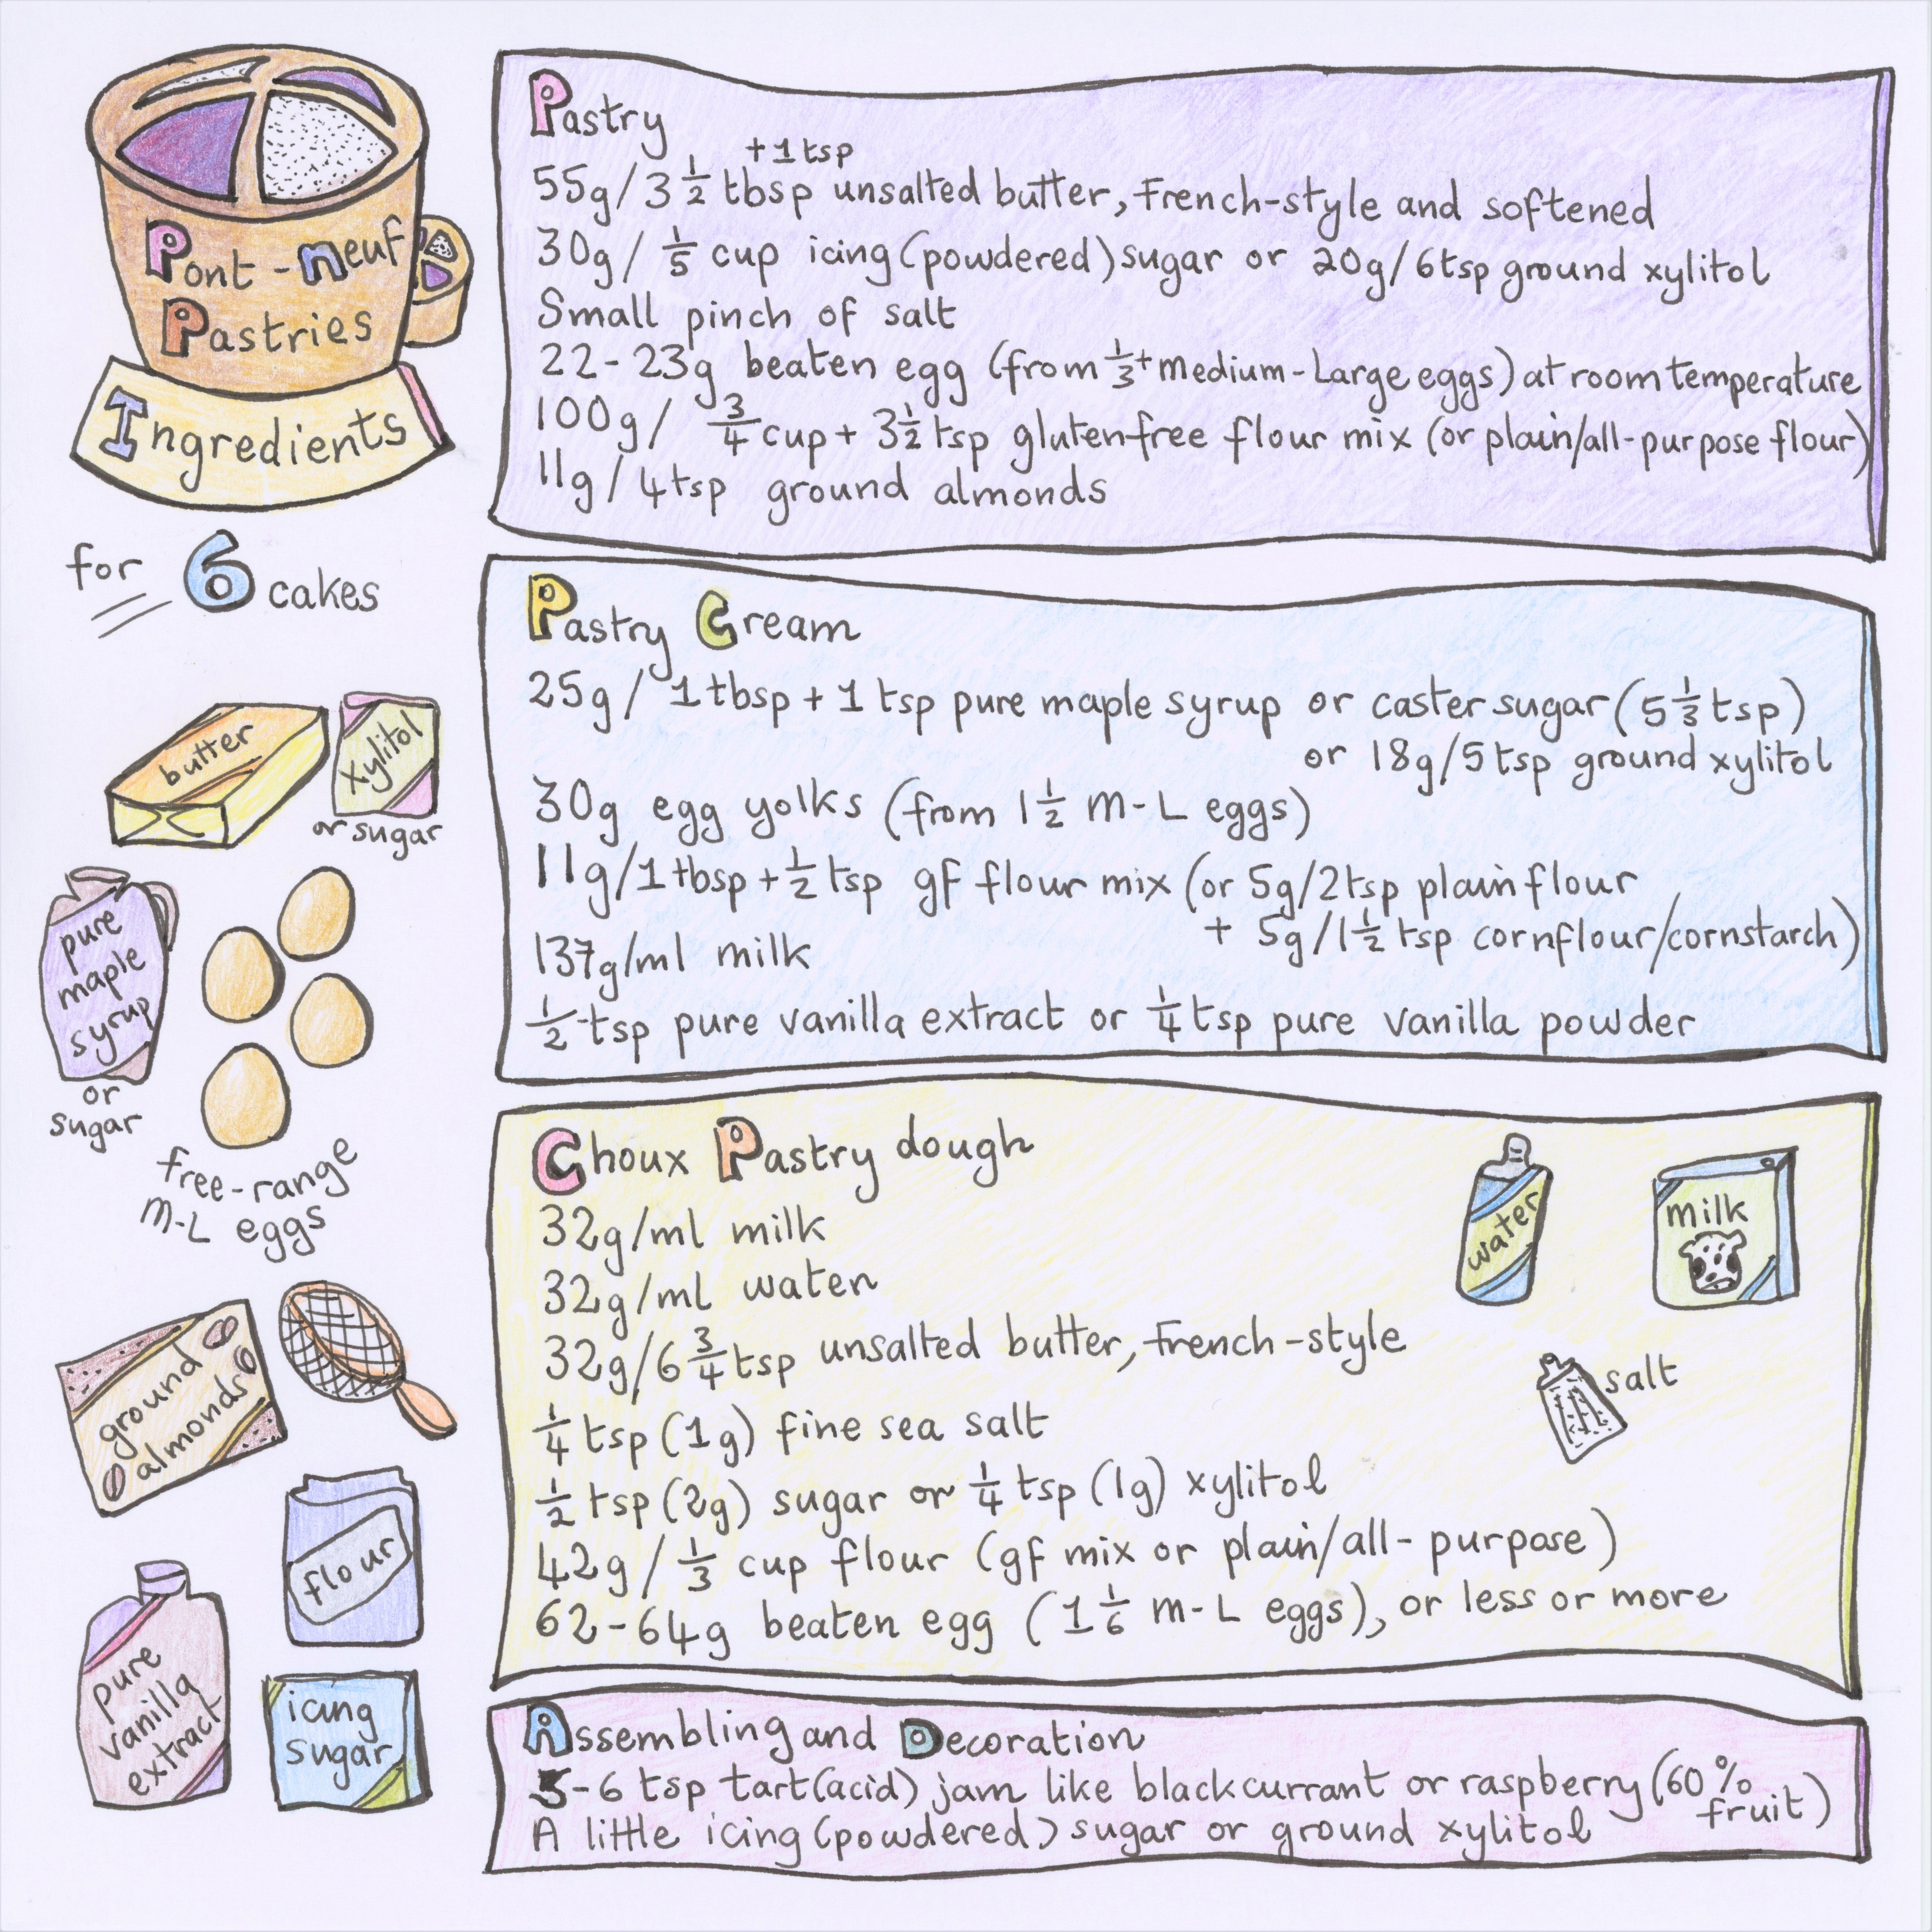 Pont-neuf
Pastries
Ingredients
for 6 cakes
butter
xylitol
or sugar
pure
maple
syrup
or
sugar
free-range
M-L eggs
ground
almonds
flour
pure
vanilla
extract
icing
sugar
Pastry
+1 tsp
55g/3 1/2 tbsp unsalted butter, French-style and softened
30g/ 1/5 cup icing (powdered) sugar or 20g/6tsp ground xylitol
Small pinch of salt
22-23g beaten egg (from 1/3+ medium-Large eggs) at room temperature
100g/ 3/4 cup + 3 1/2 tsp gluten-free flour mix (or plain/all-purpose flour)
11g/4tsp ground almonds
Pastry Cream
25g/ 1 tbsp + 1 tsp pure maple syrup or caster sugar (5 1/3 tsp)
or 18g/5 tsp ground xylitol
30g egg yolks (from 1 1/2 M-L eggs)
11g/1 tbsp + 1/2 tsp gf flour mix (or 5g/2tsp plain flour
+ 5g/1 1/2 tsp cornflour/cornstarch)
137g/ml milk
1/2 tsp pure vanilla extract or 1/4 tsp pure vanilla powder
Choux Pastry dough
32g/ml milk
32g/ml water
32g/6 3/4 tsp unsalted butter, French-style
1/4 tsp (1g) fine sea salt
1/2 tsp (2g) sugar or 1/4 tsp (1g) xylitol
42g/ 1/3 cup flour (gf mix or plain/all-purpose)
62-64g beaten egg (1 1/6 M-L eggs), or less or more
water
milk
salt
Assembling and Decoration
5-6 tsp tart (acid) jam like blackcurrant or raspberry (60% fruit)
A little icing (powdered) sugar or ground xylitol